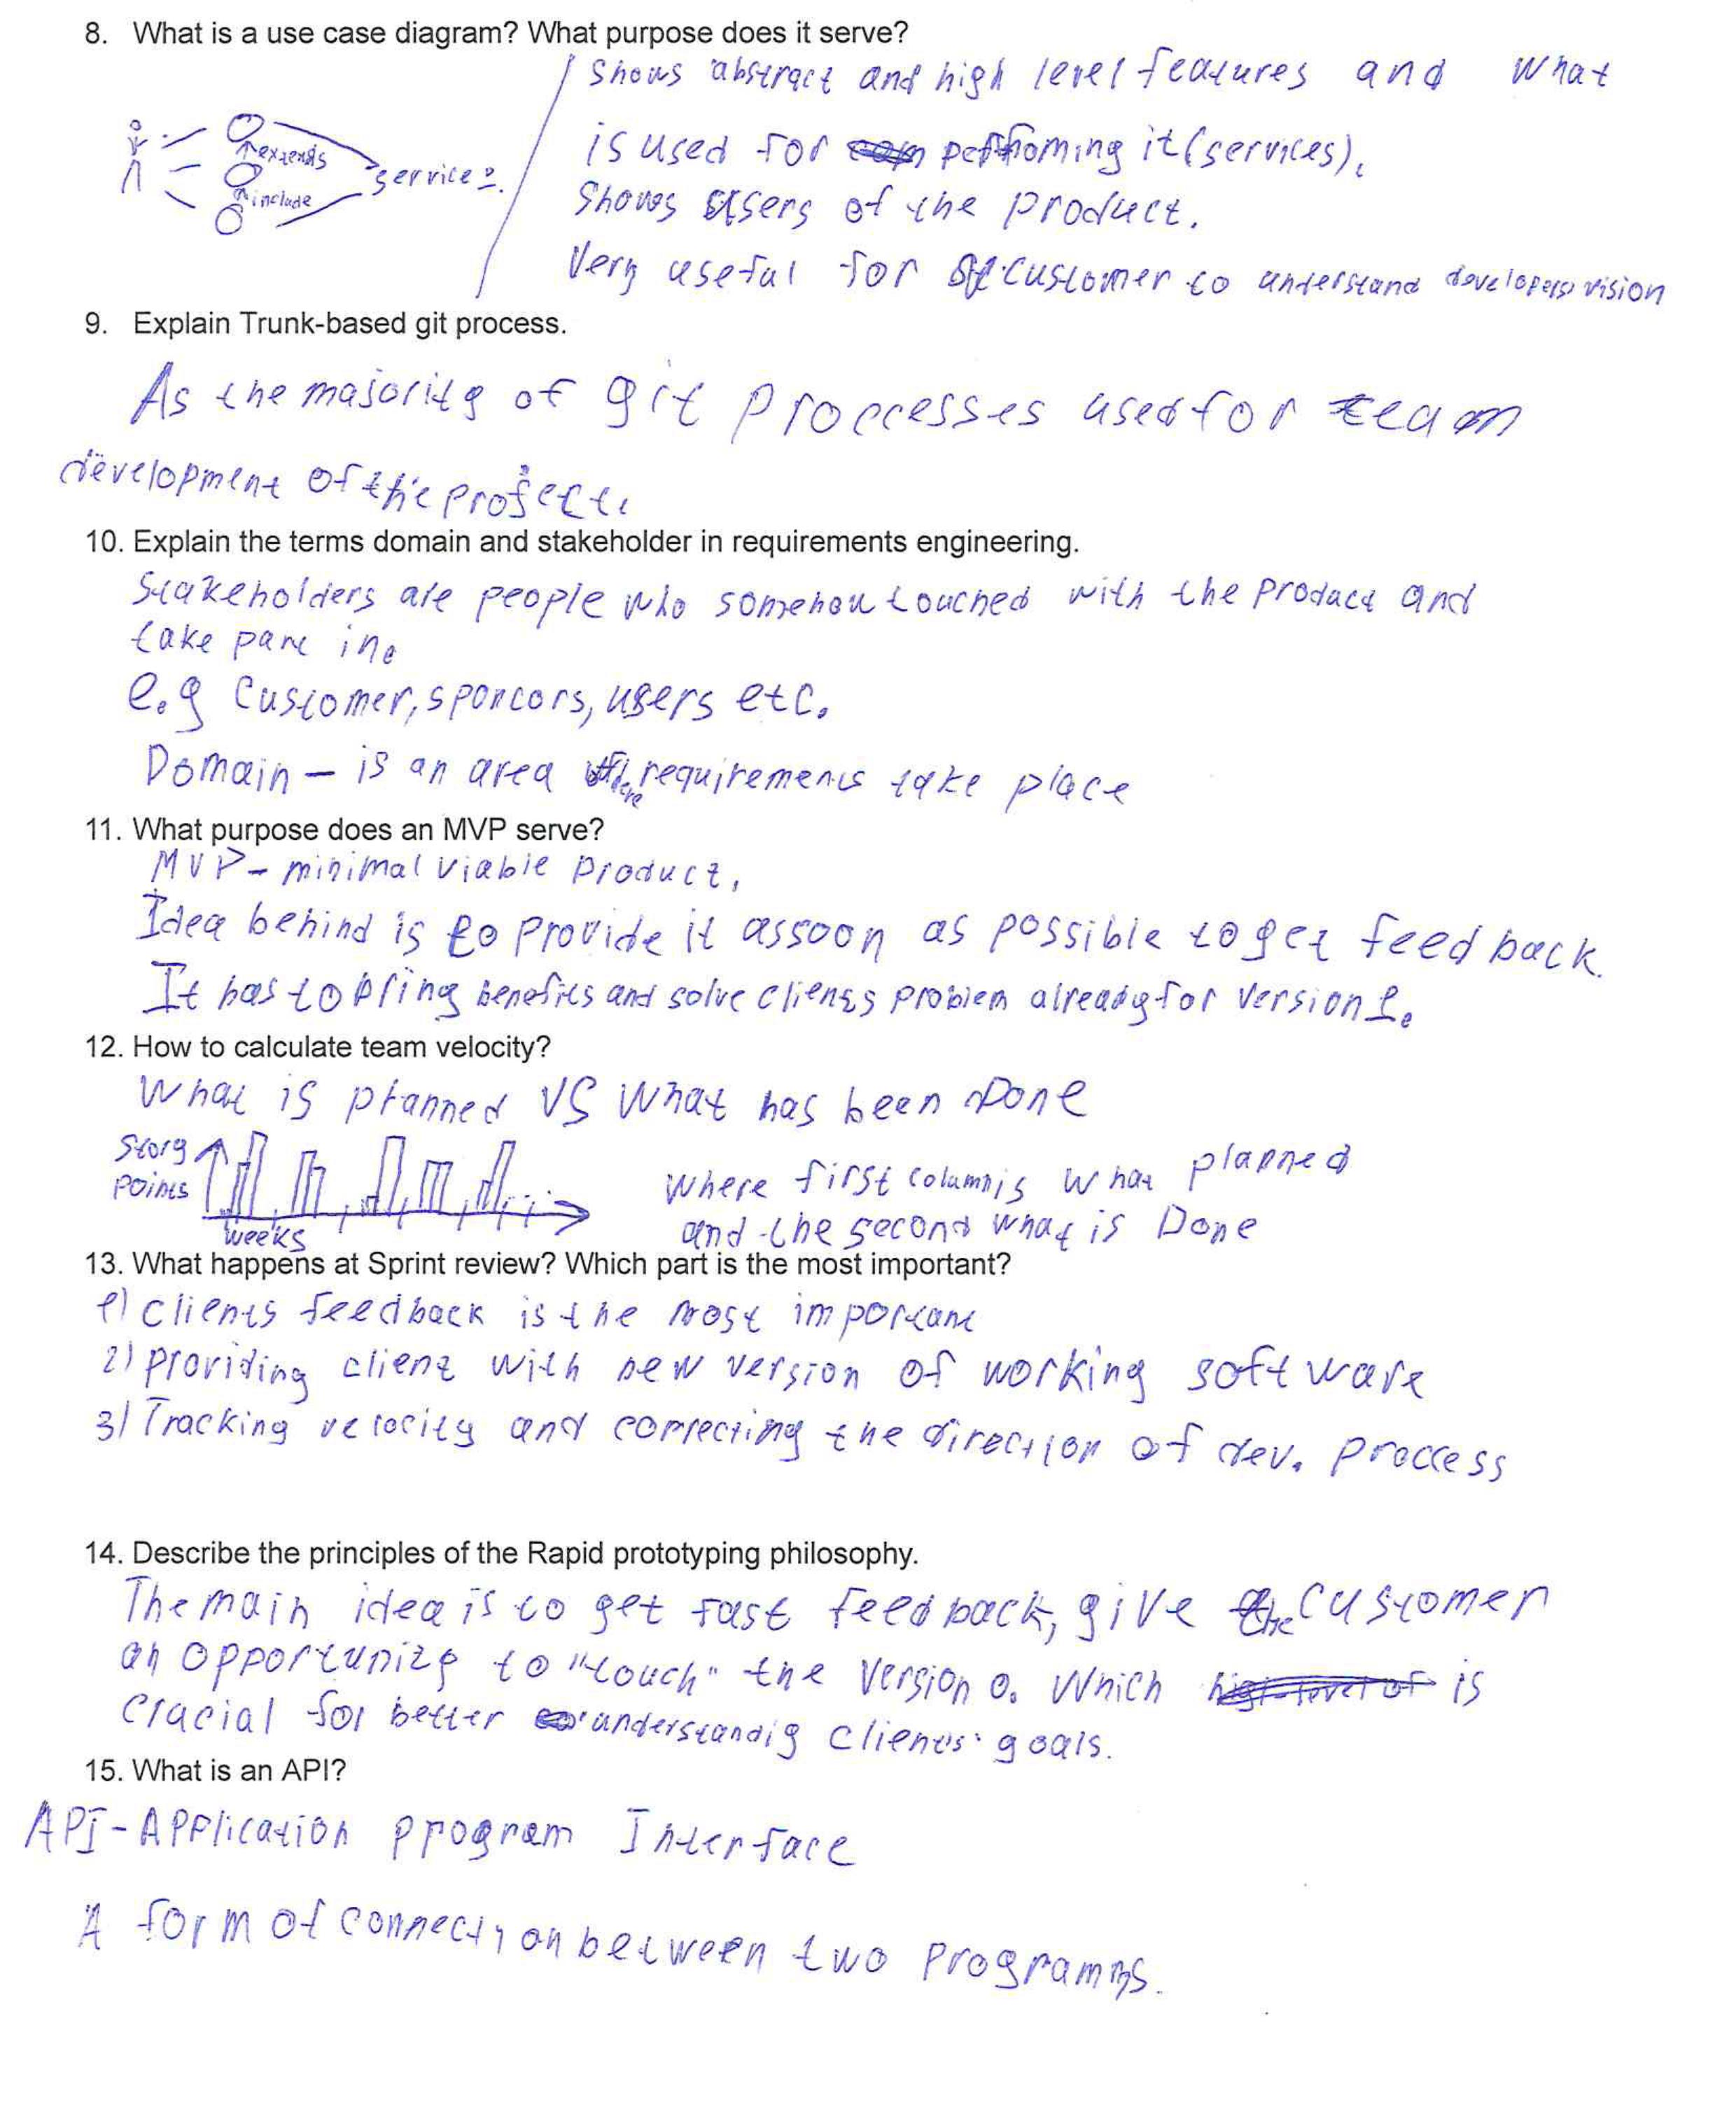 8. What is a use case diagram? What purpose does it serve?
Shows abstract and high level features and what
is used for perfhoming it (services).
Shows users of the product.
Very useful for customer to understand developers vision
extends
include
service
9. Explain Trunk-based git process.
As the majority of git proccesses used for team
development of the project.
10. Explain the terms domain and stakeholder in requirements engineering.
Stakeholders are people who somehow touched with the product and
take part in.
e.g customer, sponcors, users etc.
Domain – is an area where requirements take place
11. What purpose does an MVP serve?
MVP – minimal viable product,
Idea behind is to provide it assoon as possible to get feed back.
It has to bring benefits and solve clients problem already for version 1.
12. How to calculate team velocity?
What is planned VS What has been Done
Story
points
weeks
where first column is what planned
and the second what is Done
13. What happens at Sprint review? Which part is the most important?
1) Clients feedback is the most important
2) providing client with new version of working software
3) Tracking velocity and correcting the direction of dev. proccess
14. Describe the principles of the Rapid prototyping philosophy.
The main idea is to get fast feedback, give the customer
an opportunity to "touch" the version 0. Which is
crucial for better understandig clients' goals.
15. What is an API?
API – Application program Interface
A form of connection between two programms.